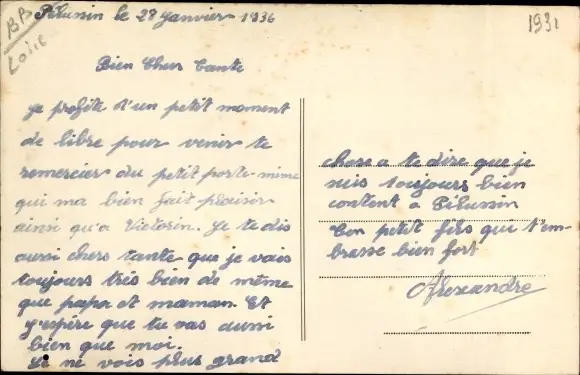 BB
Loire
Pélussin le 28 Janvier 1936
1931
Bien Chers Tante
Je profite d'un petit moment
de libre pour venir te
remercier du petit porte-mine
qui ma bien fait plaisir
ainsi qu'a Victorin. Je te dis
aussi chers tante que je vais
toujours très bien de même
que papa et maman. Et
j'espére que tu vas aussi
bien que moi.
Je ne vois plus grand
chose a te dire que je
suis toujours bien
content a Pélussin
Ton petit fils qui t'em-
brasse bien fort
Alexandre